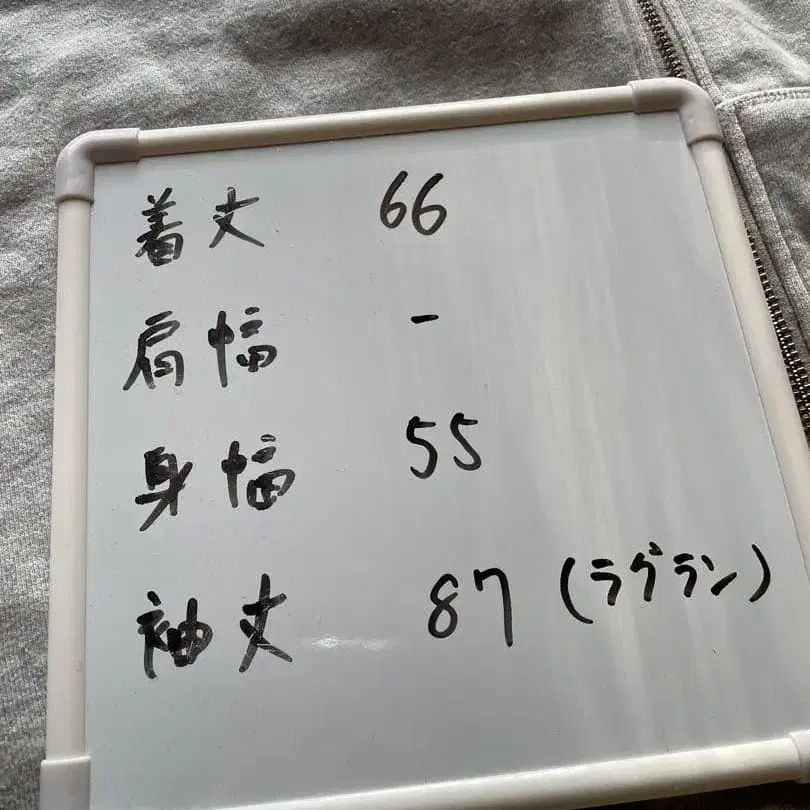 着丈 66
肩幅 -
身幅 55
袖丈 87 (ラグラン)